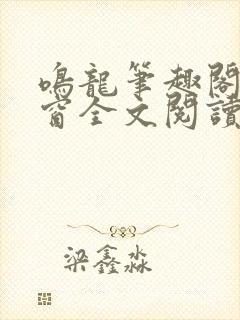 鳴龍筆趣閣
窗全文閱讀
梁鑫淼